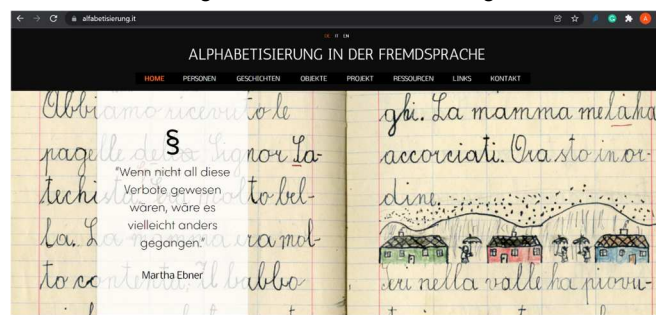 alfabetisierung.it
DE IT EN
ALPHABETISIERUNG IN DER FREMDSPRACHE
HOME PERSONEN GESCHICHTEN OBJEKTE PROJEKT RESSOURCEN LINKS KONTAKT
§
"Wenn nicht all diese
Verbote gewesen
wären, wäre es
vielleicht anders
gegangen."
Martha Ebner
Abbiamo ricevuto le
pagelle dello Signor La-
techi molto bel-
la. La mamma era mol-
to contenta. Il babbo
ghi. La mamma me la ha
accorciati. Ora sto in or-
dine.
Ieri nella valle ha piovu-